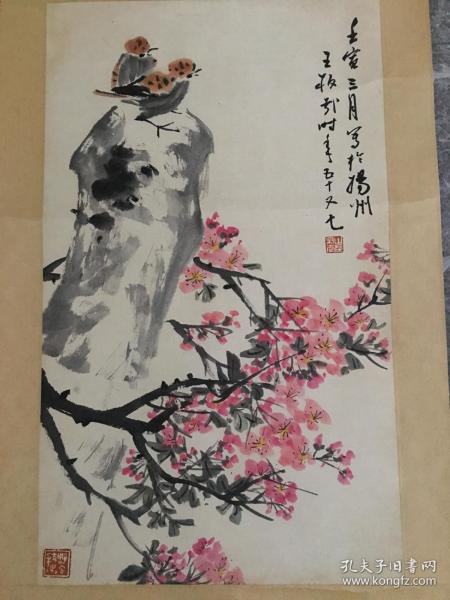 壬寅三月写于扬州
王板哉时年五十又七
孔夫子旧书网
www.kongfz.com